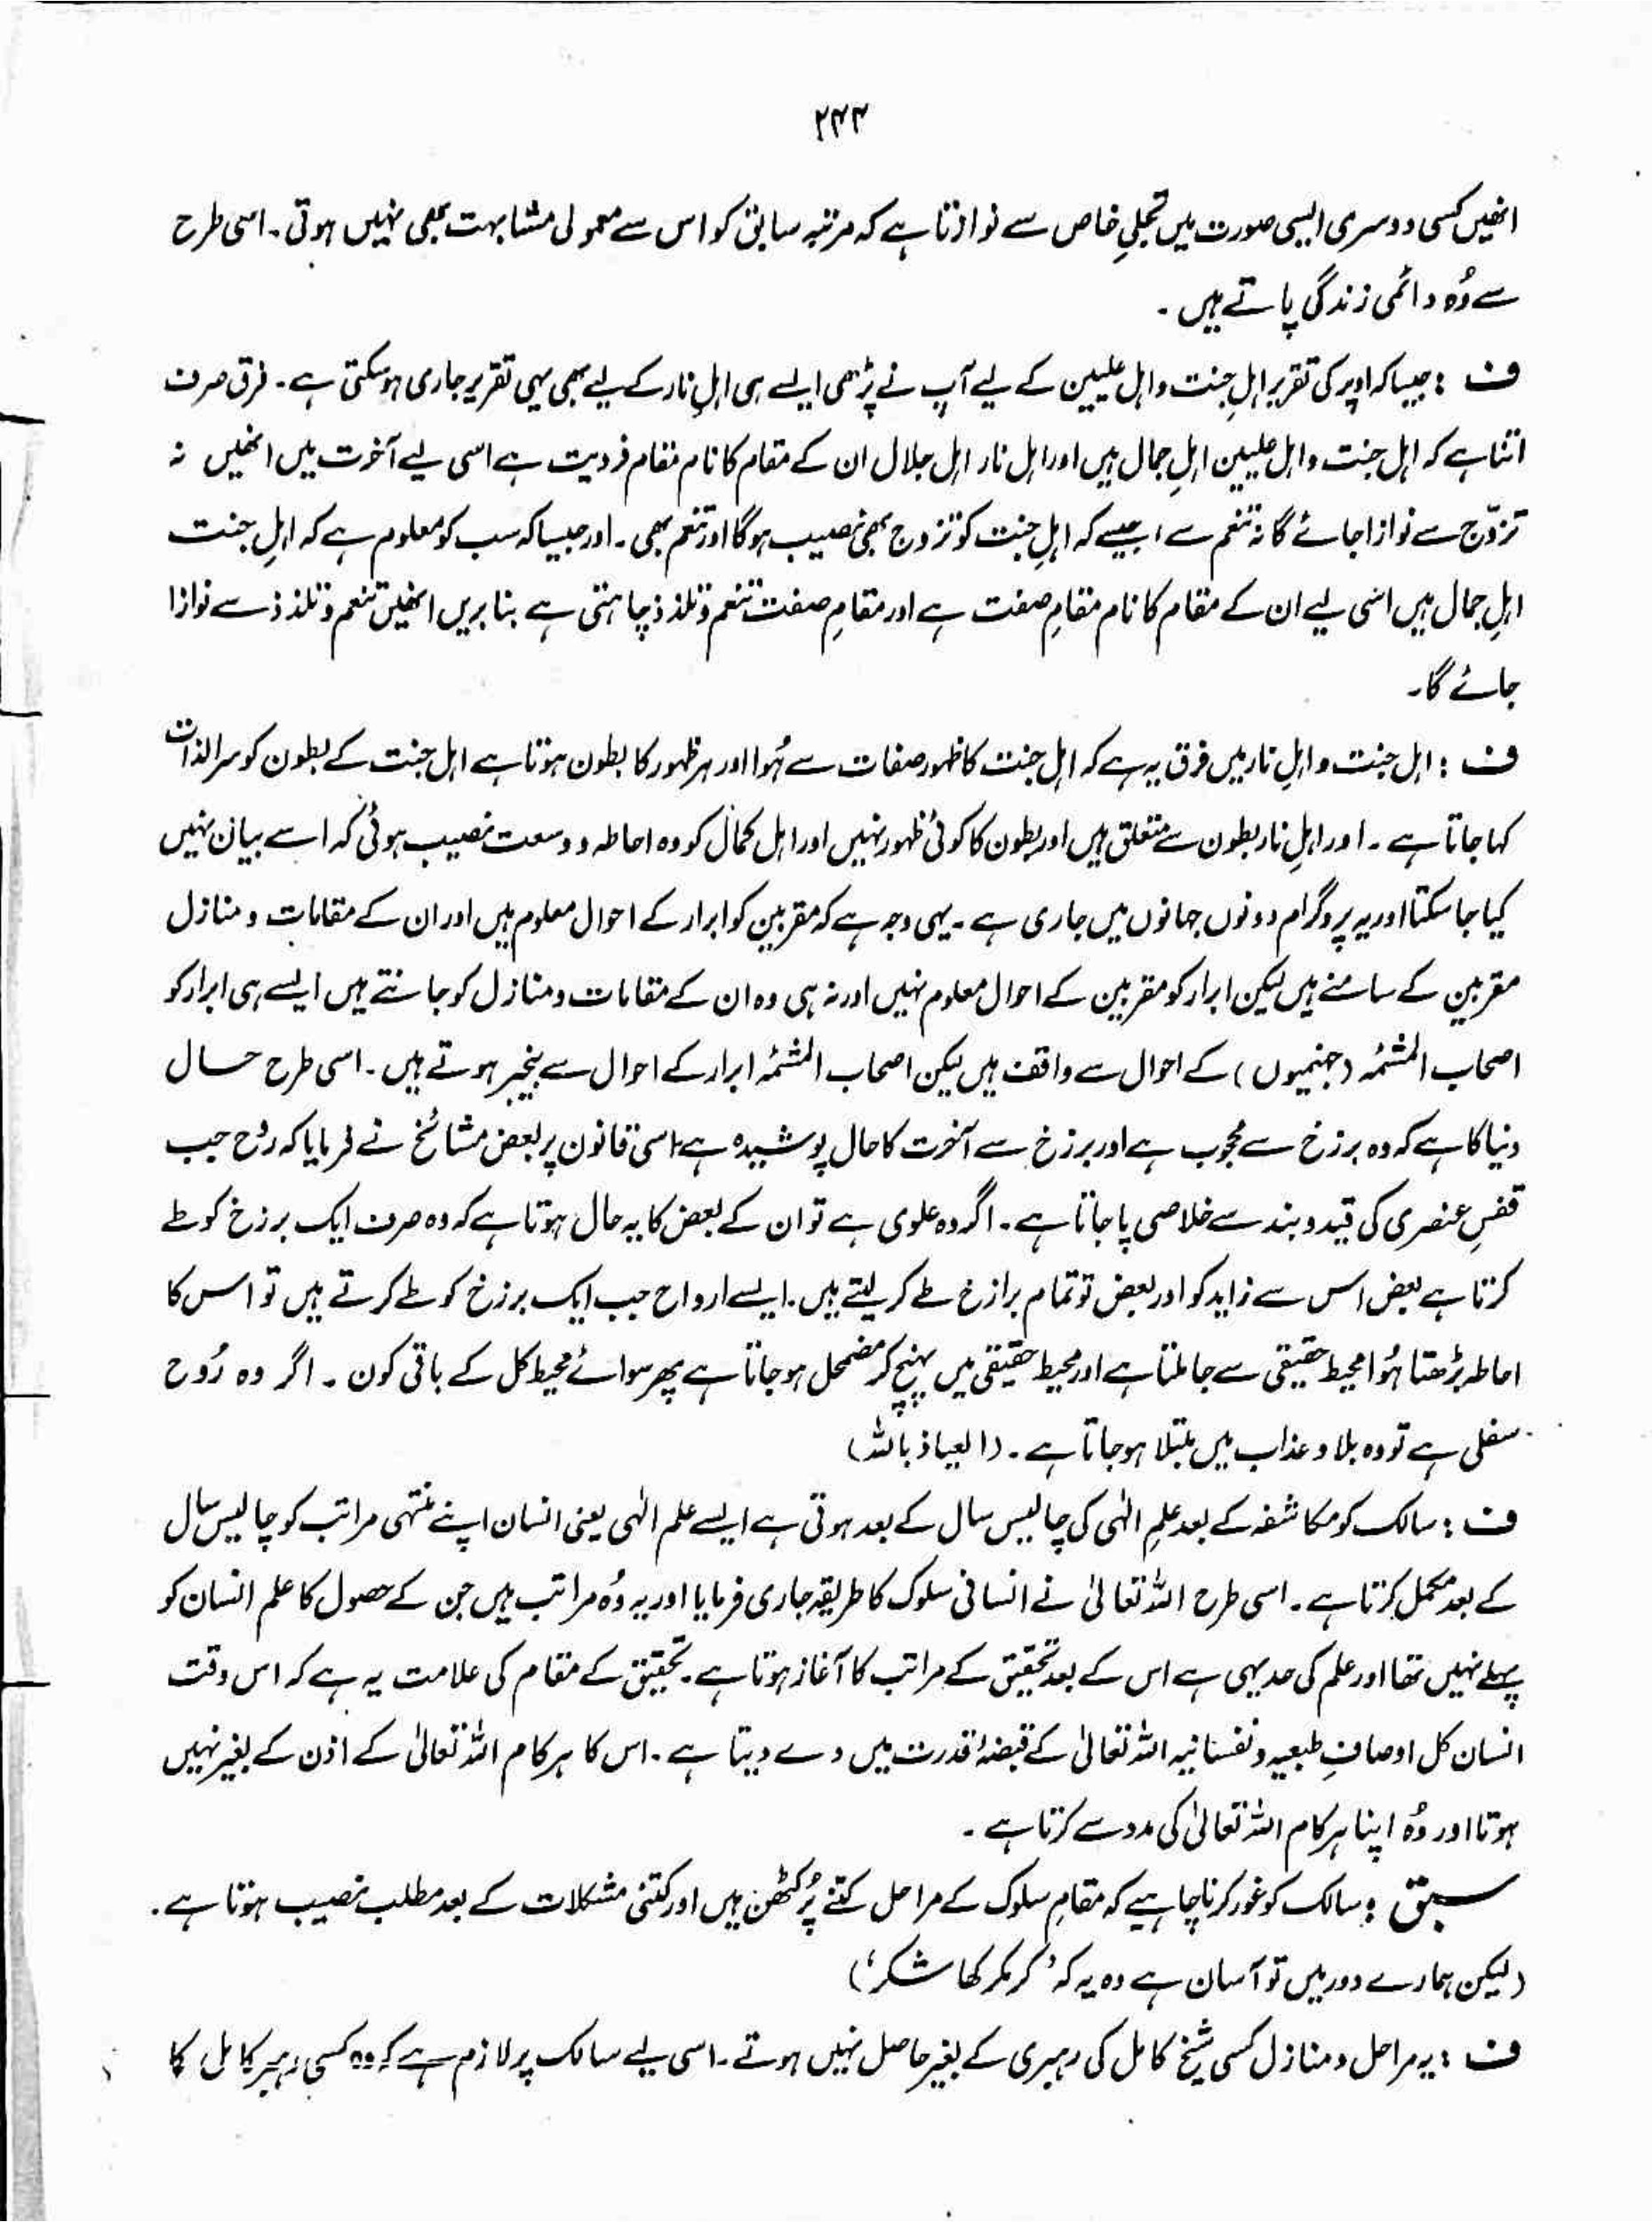 ۲۴۴
انھیں کسی دوسری ایسی صورت میں تجلیِ خاص سے نوازتا ہے کہ مرتبہ سابق کو اس سے معمولی مشابہت بھی نہیں ہوتی۔ اسی طرح
سے وُہ دائمی زندگی پاتے ہیں۔
ف : جیسا کہ اوپر کی تقریر اہلِ جنت و اہل علیین کے لیے آپ نے پڑھی ایسے ہی اہلِ نار کے لیے بھی یہی تقریر جاری ہو سکتی ہے۔ فرق صرف
اتنا ہے کہ اہل جنت و اہل علیین اہلِ جمال ہیں اور اہل نار اہل جلال ان کے مقام کا نام مقام فردیت ہے اسی لیے آخرت میں انھیں نہ
تزوّج سے نوازا جائے گا نہ تنعم سے، جیسے کہ اہلِ جنت کو تزوج بھی نصیب ہوگا اور تنعم بھی۔ اور جیسا کہ سب کو معلوم ہے کہ اہلِ جنت
اہلِ جمال ہیں اسی لیے ان کے مقام کا نام مقامِ صفت ہے اور مقامِ صفت تنعم و تلذذ چاہتی ہے بنا بریں انھیں تنعم و تلذذ سے نوازا
جائے گا۔
ف : اہل جنت و اہلِ نار میں فرق یہ ہے کہ اہل جنت کا ظہور صفات سے ہُوا اور ہر ظہور کا بطون ہوتا ہے اہل جنت کے بطون کو سر الذات
کہا جاتا ہے۔ اور اہلِ نار بطون سے متعلق ہیں اور بطون کا کوئی ظہور نہیں اور اہل کمال کو وہ احاطہ و وسعت نصیب ہوئی کہ اسے بیان نہیں
کیا جا سکتا اور یہ پروگرام دونوں جہانوں میں جاری ہے۔ یہی وجہ ہے کہ مقربین کو ابرار کے احوال معلوم ہیں اور ان کے مقامات و منازل
مقربین کے سامنے ہیں لیکن ابرار کو مقربین کے احوال معلوم نہیں اور نہ ہی وہ ان کے مقامات و منازل کو جانتے ہیں ایسے ہی ابرار کو
اصحاب المشئمہ (جہنمیوں) کے احوال سے واقف ہیں لیکن اصحاب المشئمہ ابرار کے احوال سے بےخبر ہوتے ہیں۔ اسی طرح حال
دنیا کا ہے کہ وہ برزخ سے محجوب ہے اور برزخ سے آخرت کا حال پوشیدہ ہے اسی قانون پر بعض مشائخ نے فرمایا کہ رُوح جب
قفسِ عنصری کی قید و بند سے خلاصی پا جاتا ہے۔ اگر وہ علوی ہے تو ان کے بعض کا یہ حال ہوتا ہے کہ وہ صرف ایک برزخ کو طے
کرتا ہے بعض اس سے زاید کو اور بعض تو تمام برازخ طے کر لیتے ہیں۔ ایسے ارواح جب ایک برزخ کو طے کرتے ہیں تو اس کا
احاطہ بڑھتا ہُوا محیط حقیقی سے جا ملتا ہے اور محیط حقیقی میں پہنچ کر مضمحل ہو جاتا ہے پھر سوائے محیط کل کے باقی کون۔ اگر وہ رُوح
سفلی ہے تو وہ بلا و عذاب میں مبتلا ہو جاتا ہے۔ (العیاذ باللہ)
ف : سالک کو مکاشفہ کے بعد علمِ الٰہی کی چالیس سال کے بعد ہوتی ہے ایسے علم الٰہی یعنی انسان اپنے منتہی مراتب کو چالیس سال
کے بعد مکمل کرتا ہے۔ اسی طرح اللہ تعالیٰ نے انسانی سلوک کا طریقہ جاری فرمایا اور یہ وُہ مراتب ہیں جن کے حصول کا علم انسان کو
پہلے نہیں تھا اور علم کی حد یہی ہے اس کے بعد تحقیق کے مراتب کا آغاز ہوتا ہے۔ تحقیق کے مقام کی علامت یہ ہے کہ اس وقت
انسان کل اوصافِ طبعیہ و نفسانیہ اللہ تعالیٰ کے قبضۂ قدرت میں دے دیتا ہے۔ اس کا ہر کام اللہ تعالیٰ کے اذن کے بغیر نہیں
ہوتا اور وُہ اپنا ہر کام اللہ تعالیٰ کی مدد سے کرتا ہے۔
سبق : سالک کو غور کرنا چاہیے کہ مقامِ سلوک کے مراحل کتنے پُرکٹھن ہیں اور کتنی مشکلات کے بعد مطلب نصیب ہوتا ہے۔
(لیکن ہمارے دور میں تو آسان ہے وہ یہ کہ ’کر مکر کھا شکر‘)
ف : یہ مراحل و منازل کسی شیخ کامل کی رہبری کے بغیر حاصل نہیں ہوتے۔ اسی لیے سالک پر لازم ہے کہ وہ کسی رہبر کامل کا